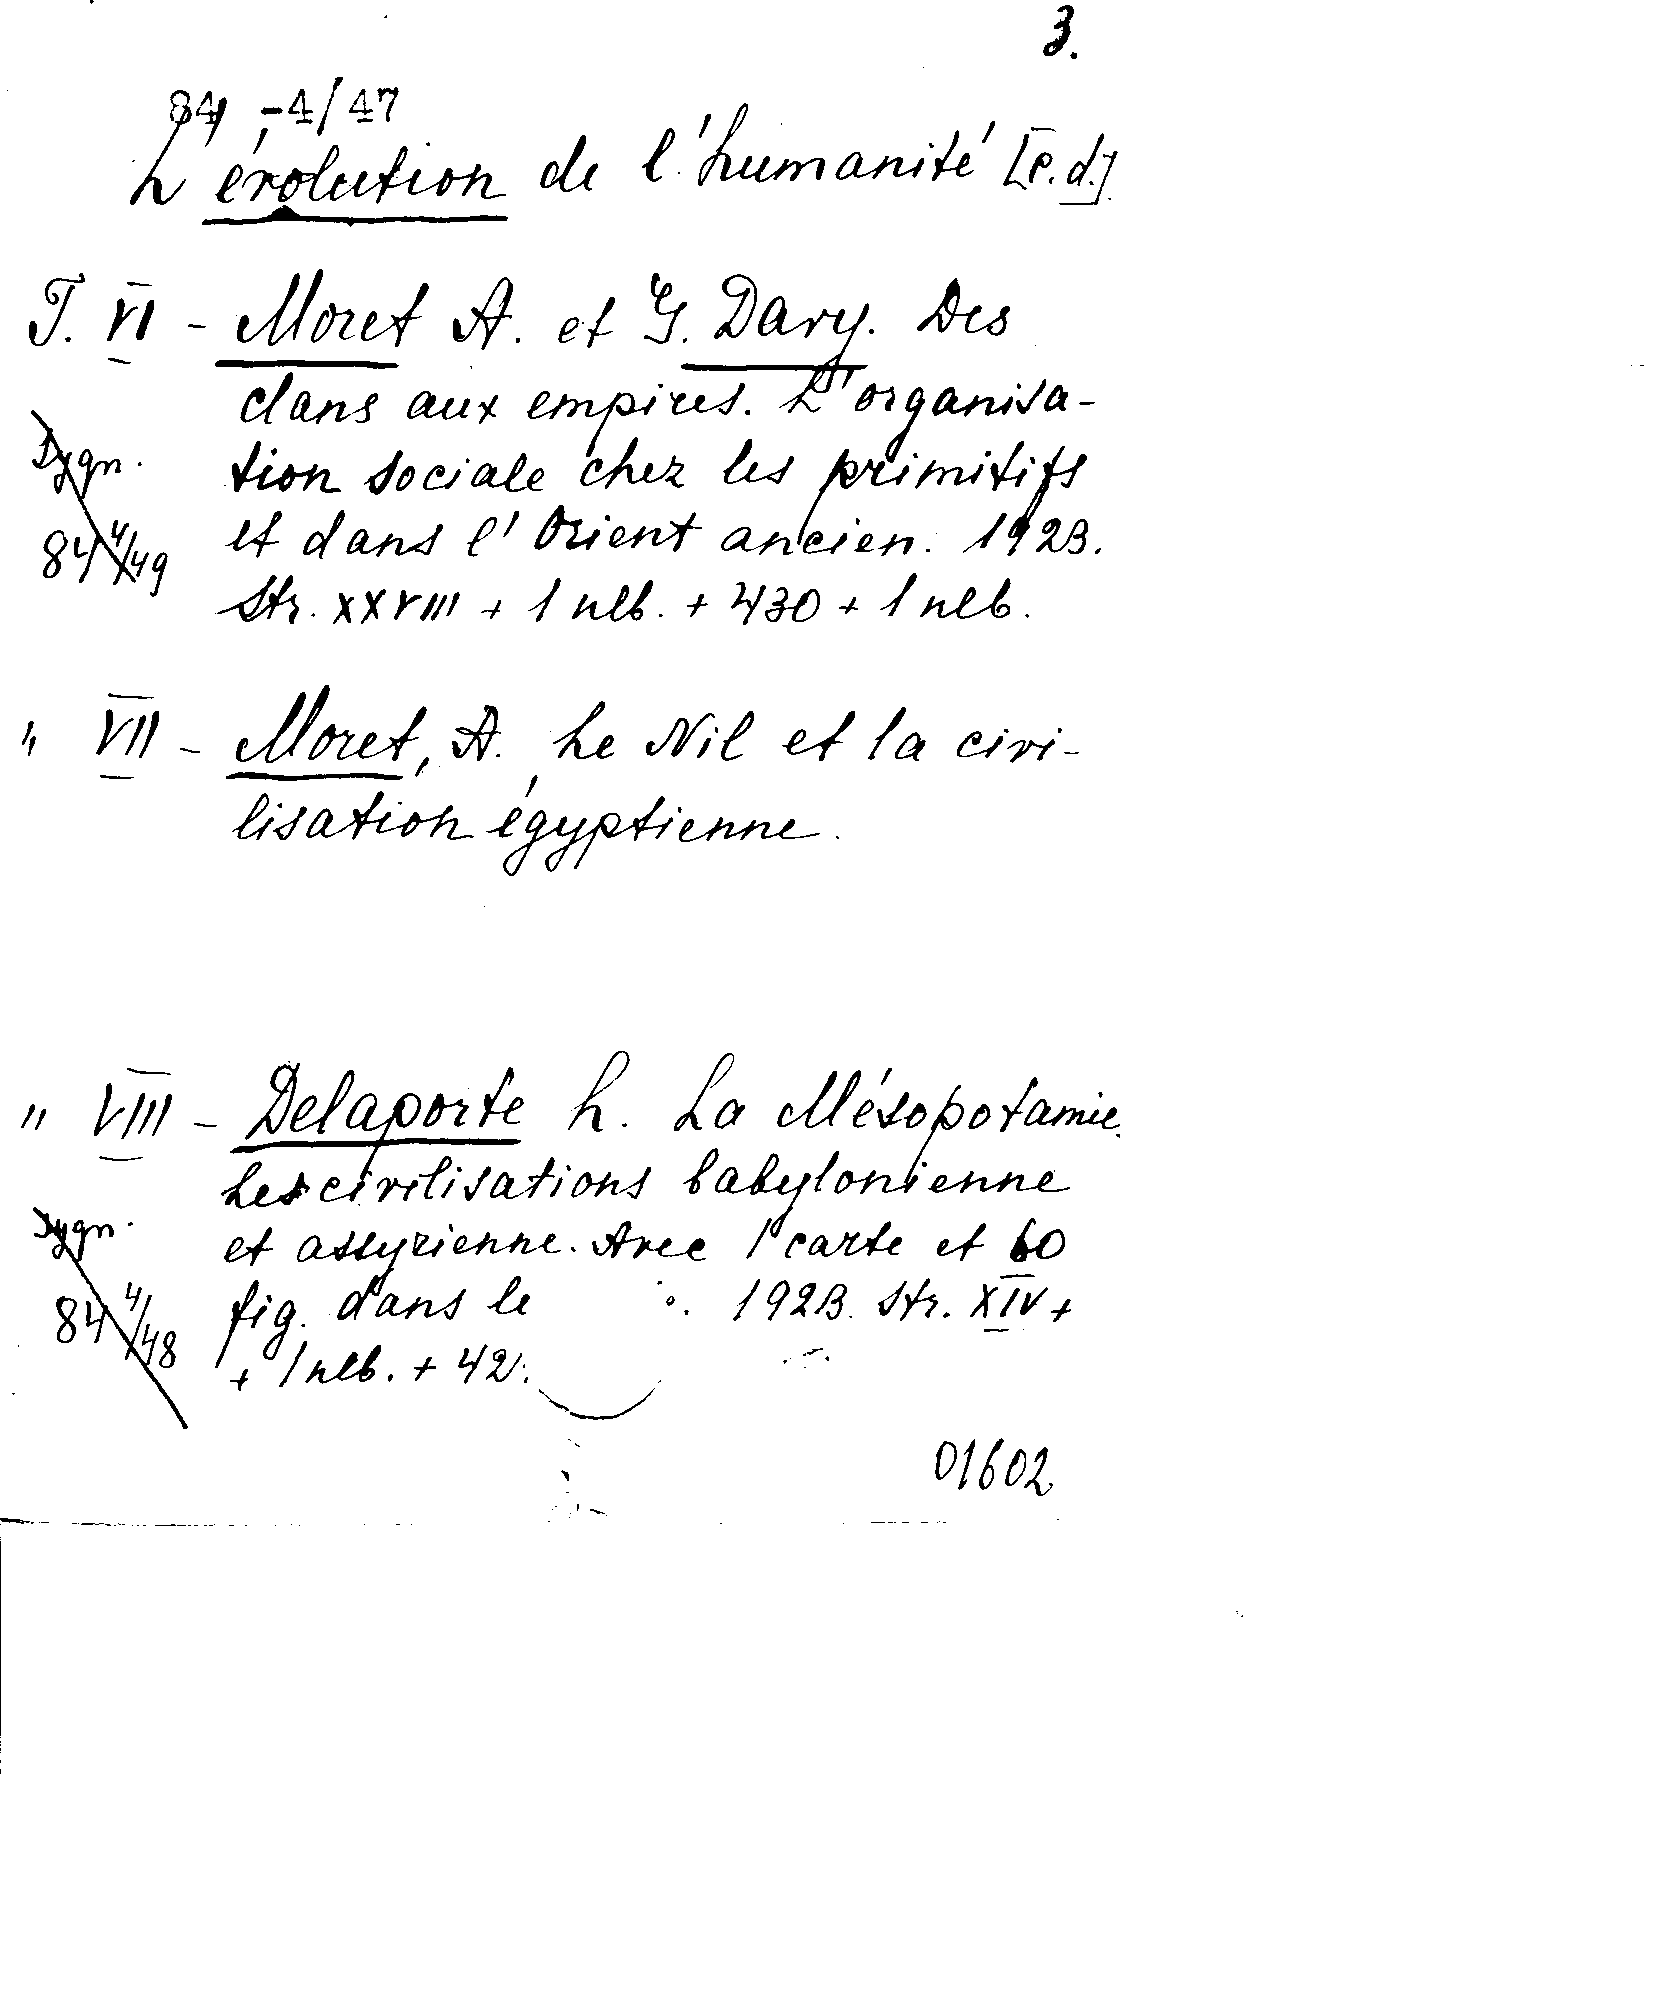 3.
84 -4/47
L'évolution de l'humanité [c.d.]
T. VI - Moret A. et G. Davy. Des
clans aux empires. L'organisa-
Sygn. tion sociale chez les primitifs
84 4/49 et dans l'Orient ancien. 1923.
Str. XXVIII + 1 nlb. + 430 + 1 nlb.
" VII - Moret, A. Le Nil et la civi-
lisation égyptienne.
" VIII - Delaporte L. La Mésopotamie.
Les civilisations babylonienne
Sygn. et assyrienne. Avec 1 carte et 60
84 4/48 fig. dans le 1923. Str. XIV +
+ 1 nlb. + 42
01602